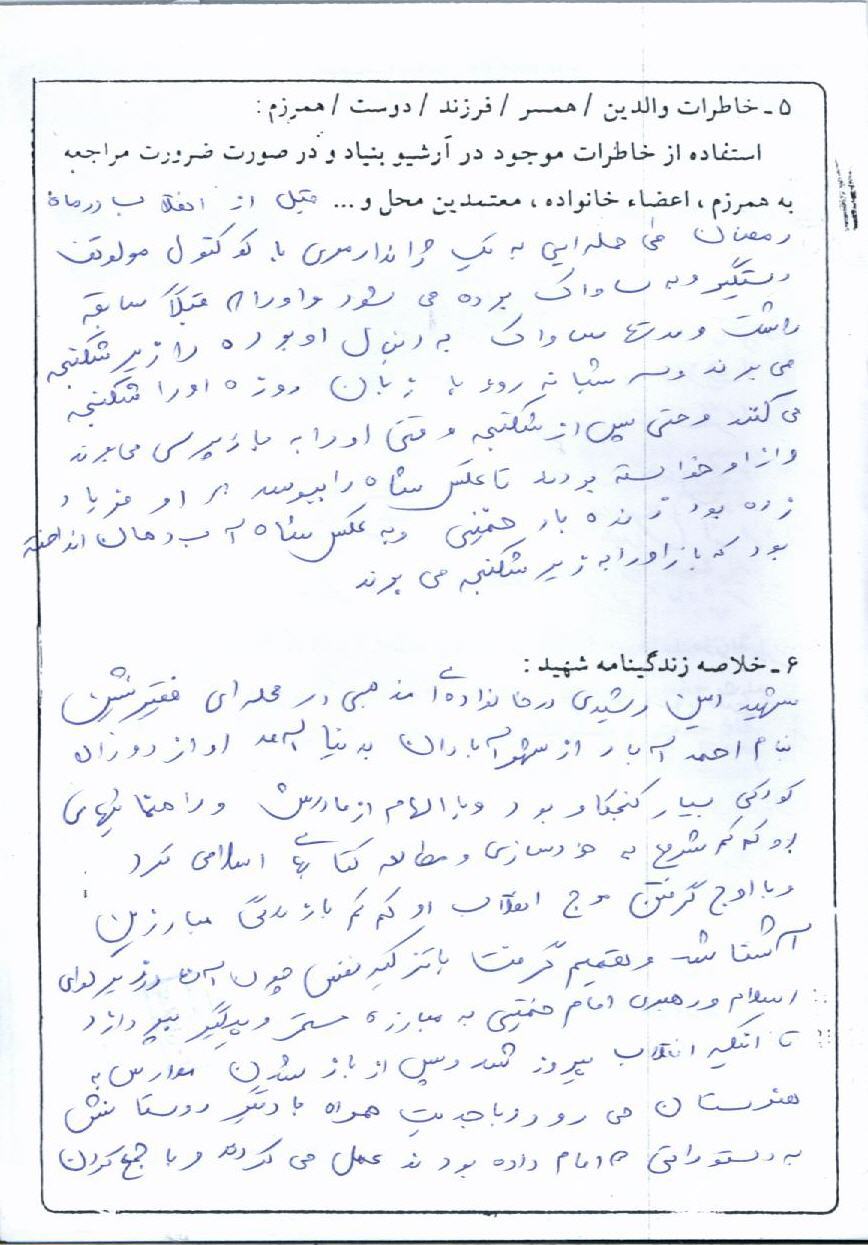 ۵ - خاطرات والدین / همسر / فرزند / دوست / همرزم :
استفاده از خاطرات موجود در آرشیو بنیاد و در صورت ضرورت مراجعه
به همرزم ، اعضاء خانواده ، معتمدین محل و ... قبل از انقلاب در ماه
رمضان طی حمله ایی به یک ژاندارمری با کوکتول مولوتف
دستگیر و به ساواک برده می شود و او را که قبلاً سابقه
داشت و مدتها ساواک به دنبال او بوده را زیر شکنجه
می برند و سه شبانه روز با زبان روزه او را شکنجه
می کنند و حتی پس از شکنجه وقتی او را به بازپرسی می برند
و از او خواسته بودند تا عکس شاه را ببوسد او فریاد
زده بود زنده باد خمینی و به عکس شاه آب دهان انداخته
بود که باز او را به زیر شکنجه می برند
۶ - خلاصه زندگینامه شهید :
شهید امین رشیدی در خانواده ای مذهبی در محله ای فقیر نشین
بنام احمد آباد از شهر آبادان به دنیا آمد او از دوران
کودکی بسیار کنجکاو بود و با الهام از مادرش و راهنمائیهای
او کم کم شروع به خودسازی و مطالعه کتابهای اسلامی کرد
و با اوج گرفتن موج انقلاب او کم کم با زندگی مبارزین
آشنا شد و تصمیم گرفت با تزکیه نفس چون آنان در زیر لوای
اسلام و رهبری امام خمینی به مبارزه مستمر و پیگیر بپردازد
تا اینکه انقلاب پیروز شد و پس از باز شدن مدارس به
هنرستان می رود و با جدیت همراه با دیگر دوستانش
به دستوراتی که امام داده بودند عمل می کردند و با جمع کردن